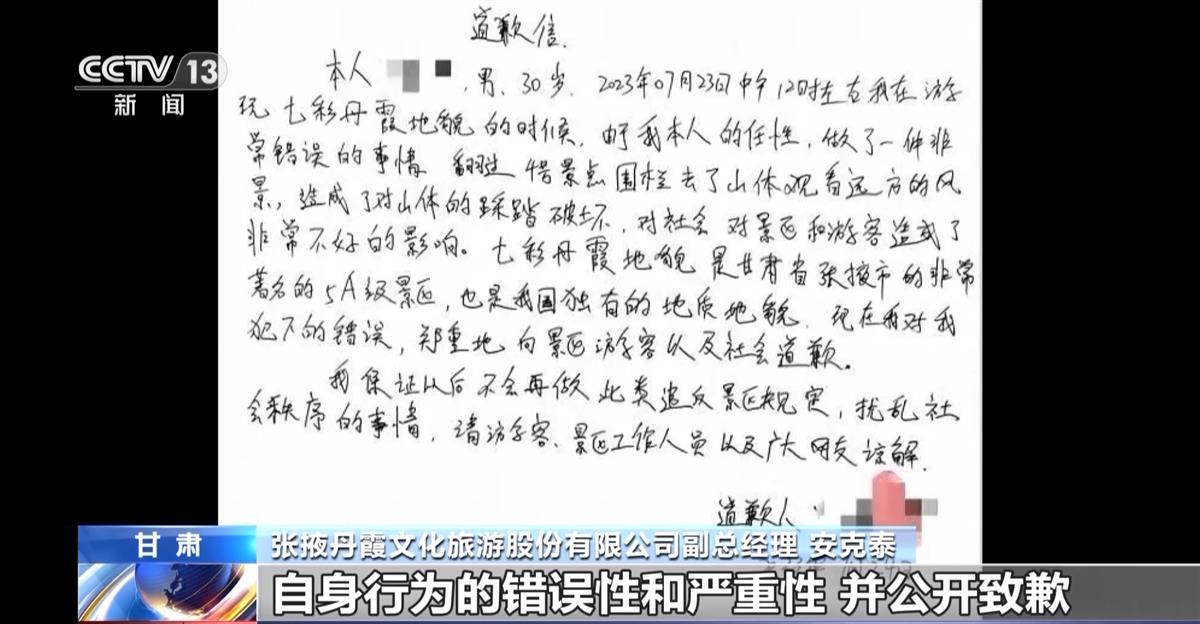 CCTV 13
新闻
道歉信.
本人 ,男、30岁. 2023年07月23日中午12时左右我在游
玩七彩丹霞地貌的时候,由于我本人的任性,做了一件非
常错误的事情 翻越 景点围栏去了山体观看远方的风
景,造成了对山体的踩踏破坏,对社会 对景区和游客造成了
非常不好的影响。七彩丹霞地貌 是甘肃省张掖市的非常
著名的5A级景区,也是我国独有的地质地貌. 现在我对我
犯下的错误,郑重地向景区游客以及社会道歉。
我保证以后不会再做此类违反景区规定,扰乱社
会秩序的事情,请游客、景区工作人员以及广大网友谅解.
道歉人
甘肃
张掖丹霞文化旅游股份有限公司副总经理 安克泰
自身行为的错误性和严重性 并公开致歉